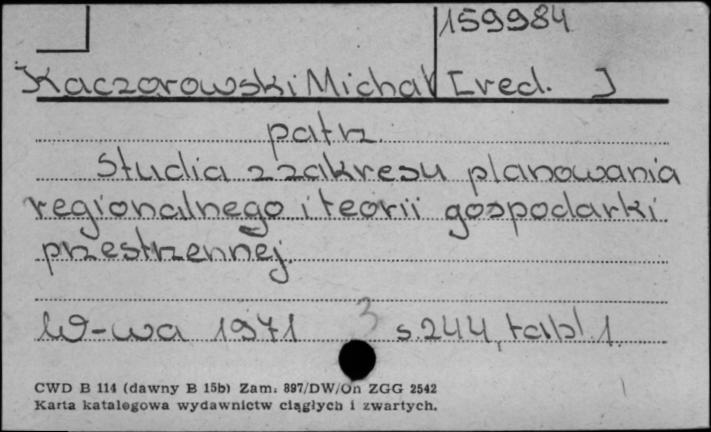 159984
Kaczorowski Michał [red. ]
patrz
Studia z zakresu planowania
regionalnego i teorii gospodarki
przestrzennej.
W-wa 1971 3 s. 244, tabl. 1.
CWD B 114 (dawny B 15b) Zam. 897/DW/Oń ZGG 2542
Karta katalogowa wydawnictw ciągłych i zwartych.